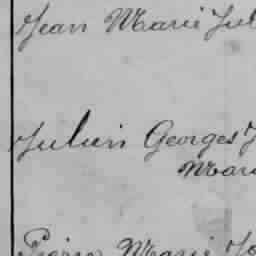 Jean Marie Jul
Julien Georges J
Mari
Pierre Marie Jo